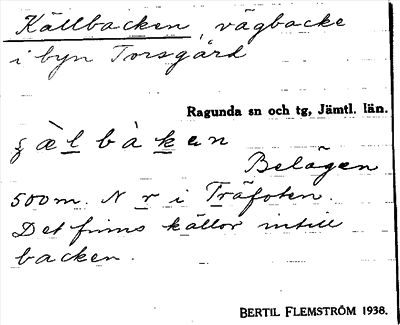 Källbacken, vägbacke
i byn Torsgård
Ragunda sn och tg, Jämtl. län.
Belägen
500 m. N r i Träfoten.
Det finns källor intill
backen.
BERTIL FLEMSTRÖM 1938.